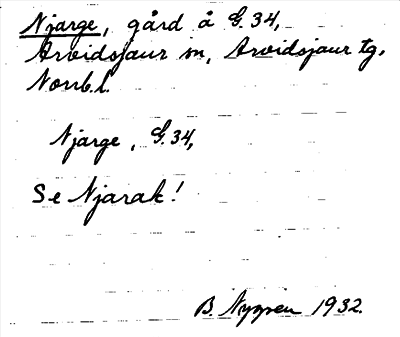 Njarge, gård å G. 34,
Arvidsjaur sn, Arvidsjaur tg.
Norrb. l.
Njarge, G. 34,
Se Njarak!
B. Nygren 1932.